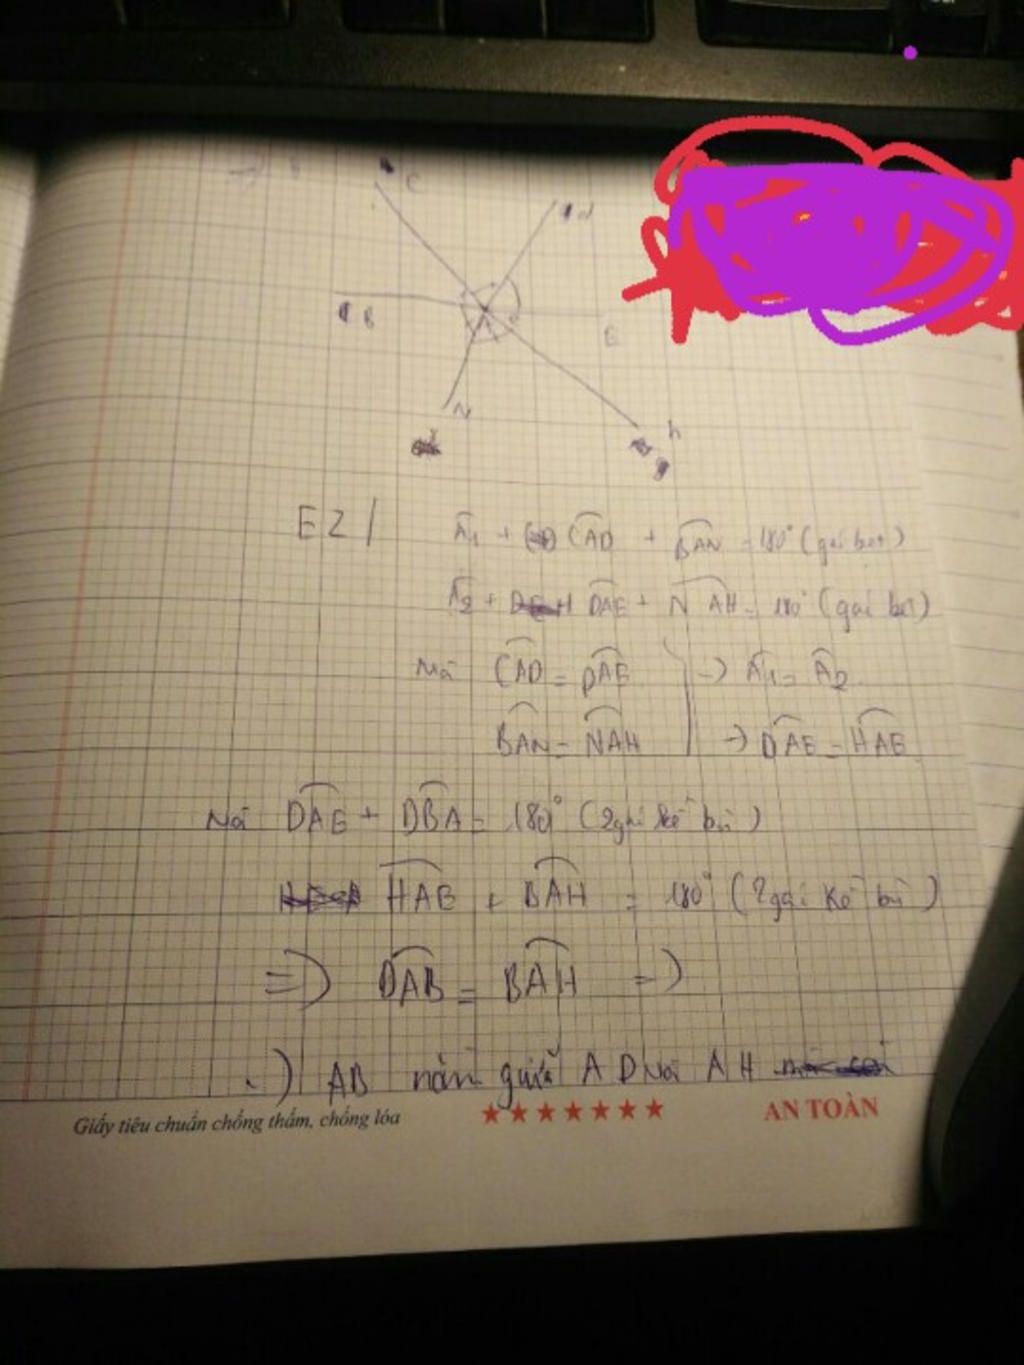 C
d
B
E
N
h
EZ /
Â₁ + CAD + BAN = 180° (góc bẹt)
Â₂ + DAE + NAH = 180° (góc bẹt)
Mà CAD = DAE → Â₁ = Â₂
BAN = NAH → DAE = HAE
Mà DAE + DBA = 180° (2 góc kề bù)
HAE + BAH = 180° (2 góc kề bù)
=> DAB = BAH =>
AB nằm giữa AD và AH
Giấy tiêu chuẩn chống thấm, chống lóa ★★★★★★★ AN TOÀN